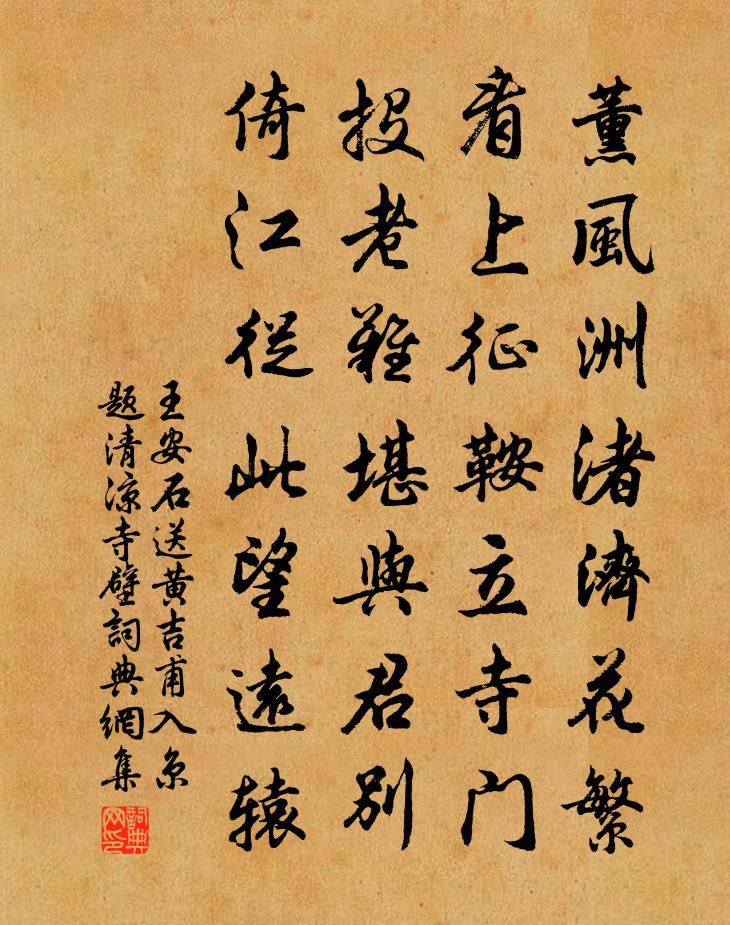 薰風洲渚濟花繁
看上征鞍立寺门
投老難堪與君别
倚江從此望遠辕
王安石送黄吉甫入京
题清凉寺壁詞典網集
詞典
网印